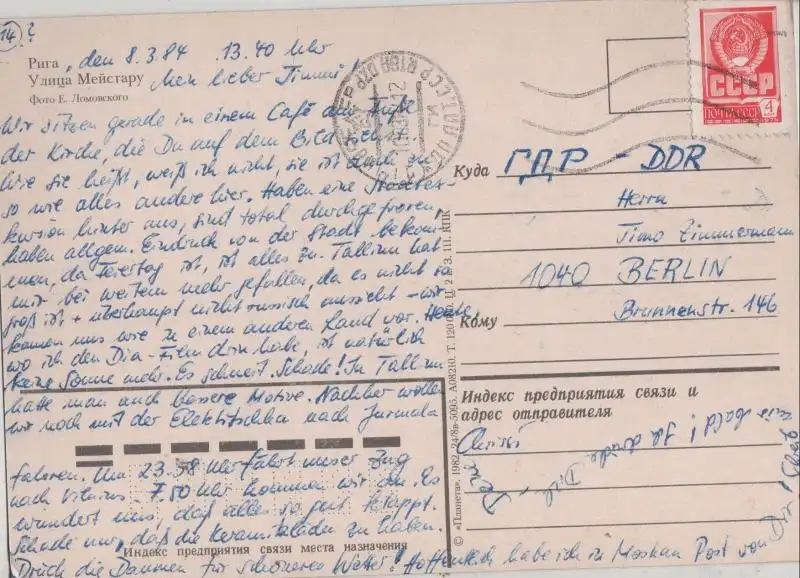 14 ?
Рига, den 8.3.84 13.40 Uhr
Улица Мейстару
Фото Е. Ломовского
Mein lieber Timmi!
Wir sitzen gerade in einem Café am Fuße
der Kirche, die Du auf dem Bild siehst
Wie sie heißt, weiß ich nicht, sie ist auch zu
so wie alles andere hier. Haben eine
kursion hinter uns, sind total durchgefroren,
haben allgem. Eindruck von der Stadt bekom-
men, da Feiertag ist, ist alles zu. Tallinn hat
mir bei weitem mehr gefallen, da es nicht so
groß ist + überhaupt nicht russisch aussieht - wir
kamen uns wie in einem anderen Land vor. Heute
wo ich den Dia-Film drin habe, ist natürlich
keine Sonne mehr. Es schneit. Schade! In Tallinn
hatte man auch bessere Motive. Nachher wollen
wir noch mit der Elektitschka nach Jurmala
fahren. Um 23.58 Uhr fährt unser Zug
nach Vilnius - 7.50 Uhr kommen wir an. Es
wundert uns, daß alles so gut klappt.
Schade nur, daß die Keramikläden zu haben.
Индекс предприятия связи места назначения
Drück die Daumen für schöneres Wetter! Hoffentlich habe ich in Moskau Post von Dir!
СССР
ПОЧТА СССР 4
Куда ГДР - DDR
Herrn
Timo Zimmermann
1040 BERLIN
Brunnenstr. 146
Кому
Индекс предприятия связи и
адрес отправителя
bis bald! Ich drücke
Dich, Deine
© «Планета». 1982. 24/8в-5095. А08210. Т. 120 000. Ц. 2 к. З. III. КПК